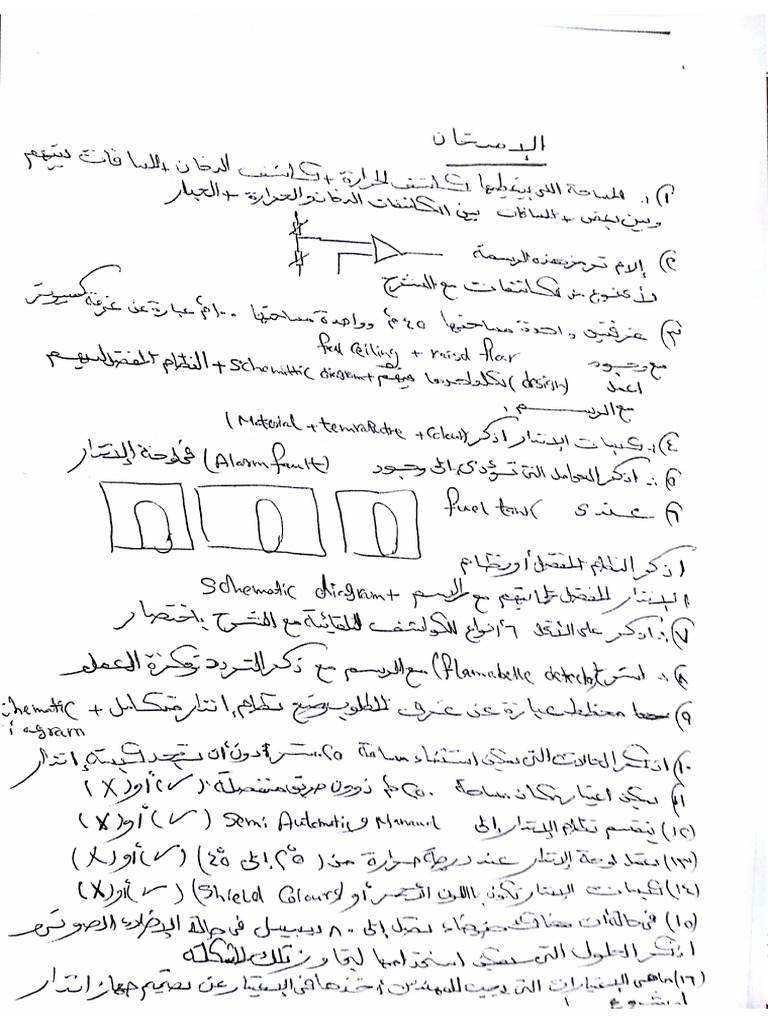 الامتحان
١) :. المساحة التي يغطيها كاشف الحرارة + كاشف الدخان + المسافات بينهم
وبين بعض + المسافات بين الكاشفات الدخان والحرارة + الجدار
٢) إلام ترمز هذه الرسمة
لأي نوع من الكاشفات مع الشرح
٣) غرفتين واحدة مساحتها ٤٥م٢ وواحدة مساحتها ١٠٠م٢ عبارة عن غرفة كمبيوتر
مع وجود fall ceiling + raisd flar
اعمل (design) لكل واحدة منهم + schemittic diagram + النظام المفضل لديهم
مع الرسم :
٤) :. كيبلات الإنذار اذكر (Material + temrature + Colour)
٥) :. اذكر العوامل التي تؤدي إلى وجود (Alarm fault) في لوحة الإنذار
٦) عندي fuel tank
اذكر النظام المفضل أو نظام
الإنذار المفضل لحمايتهم مع الرسم + schematic diagram
٧) :. اذكر على الأقل ٦ أنواع للكواشف التلقائية مع الشرح باختصار
٨) :. اشرح (flamabelle detector) مع الرسم مع ذكر التردد وفكرة العمل
٩) مخطط عبارة عن غرف المطلوب وضع نظام إنذار متكامل + schematic
diagram
١٠) اذكر الحالات التي يمكن استثناء مساحة ٢٥ متر دون أن يتمد كيبلة إنذار
١١) يمكن اعتبار مكان مساحة ٢٥٠م٢ زون حريق منفصلة. (✓) أو (X)
١٢) ينقسم نظام الإنذار إلى Manual و Semi Automatic (✓) أو (X)
١٣) تعمل لوحة الإنذار عند درجة حرارة من (٢٥ إلى ٤٥) (✓) أو (X)
١٤) كيبلات الإنذار تكون باللون الأحمر أو (Shield Colours) (✓) أو (X)
١٥) في حالة أن هناك ضوضاء تصل إلى ٨٠ ديسيبل في حالة الإنذار الصوتي
اذكر الحلول التي يمكن استخدامها لتجاوز تلك المشكلة
١٦) ما هي الاعتبارات التي يجب للمهندس أخذها في الاعتبار عن تصميم جهاز إنذار
لمشروع